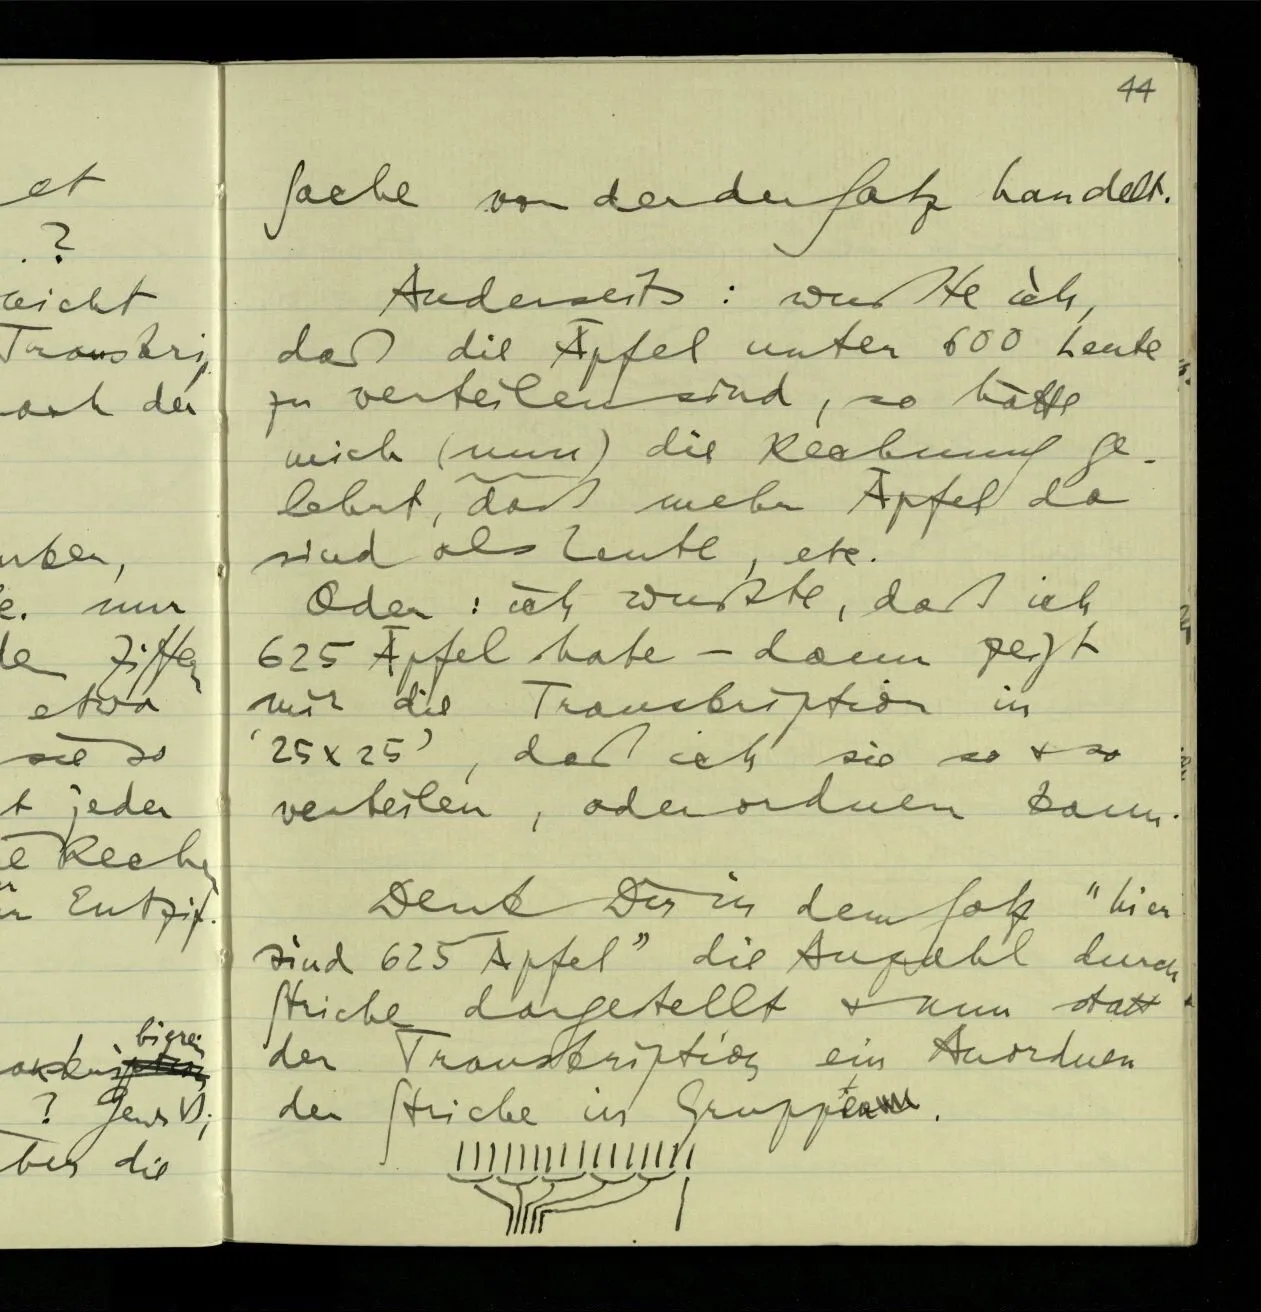 44
et
?
reicht
Transkrip
nach der
nur
den Ziffern
etwa
sie so
t jeder
e Rechn
Entzif.
bieren
? Jens V;
ber die
Sache von der der Satz handelt.
Anderseits: wußte ich,
daß die Äpfel unter 600 Leute
zu verteilen sind, so hätte
mich (nun) die Rechnung ge-
lehrt, daß mehr Äpfel da
sind als Leute, etc.
Oder: ich wußte, daß ich
625 Äpfel habe – dann zeigt
mir die Transkription in
'25x25', daß ich sie so + so
verteilen, oder ordnen kann.
Denk Dir in dem Satz "hier
sind 625 Äpfel" die Anzahl durch
Striche dargestellt + nun statt
der Transkription ein Anordnen
der Striche in Gruppen.